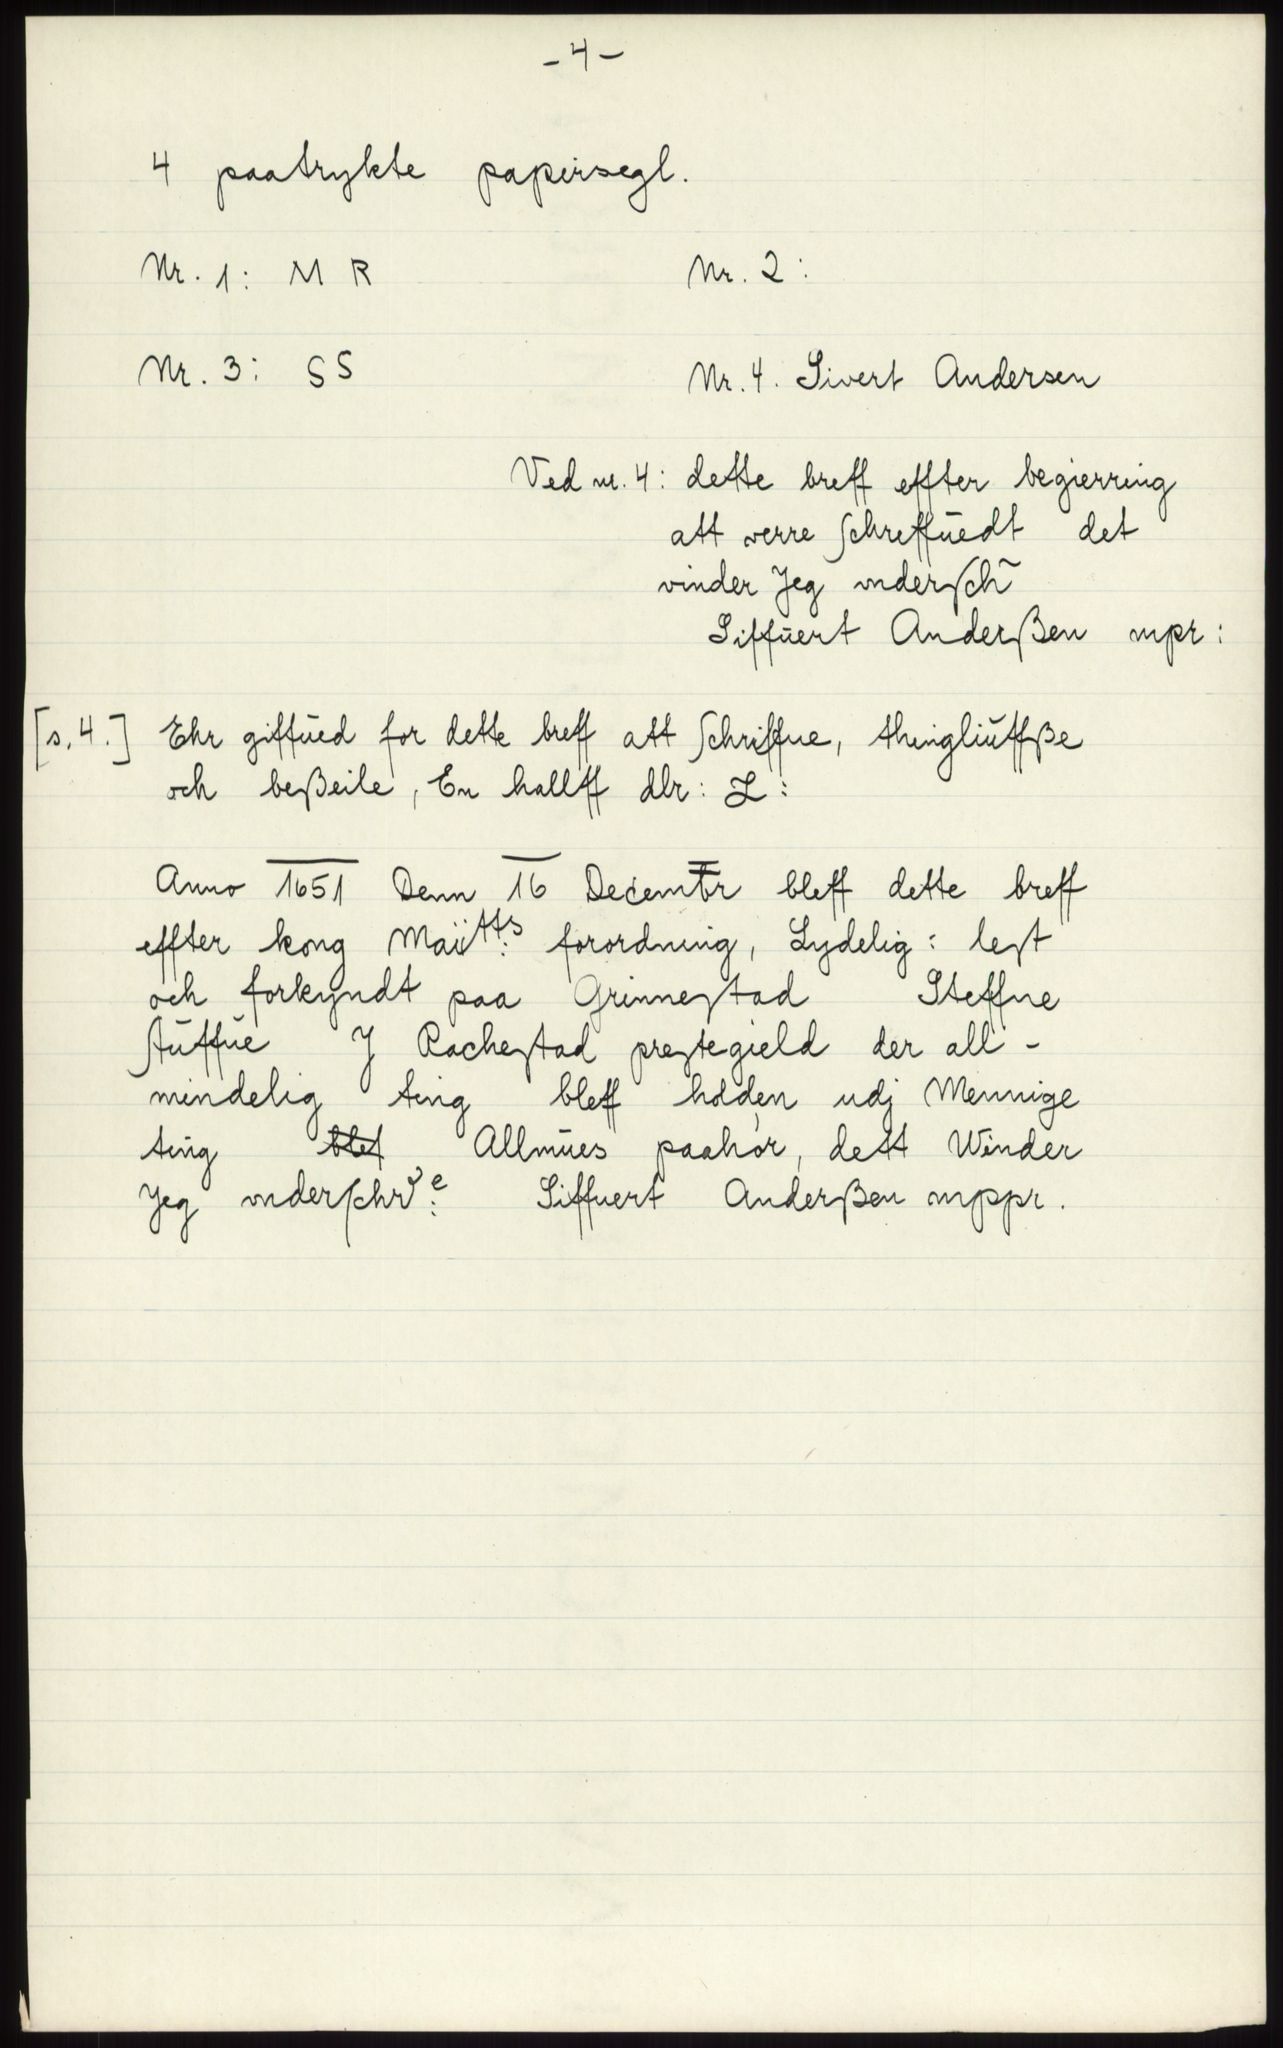 - 4 -
4 paatrykte papirsegl.
Nr. 1: M R
Nr. 2:
Nr. 3: S S
Nr. 4. Sivert Andersen
Ved nr. 4: dette breff effter begierring
att verre ſchreffŭedt det
vinder Jeg vnderſch̃
Siffŭert Anderßen mpr:
[s. 4.] Ehr giffŭed for dette breff att ſchriffue, thingliŭffße
och beßeile, En hallff dlr: L:
Anno 1651 Denn 16 Decembr bleff dette breff
effter kong Maÿtts: forordning, Lydelig: leſt
och forkyndt paa Grinneſtad Steffne
ſtŭffŭe J Racheſtad preſtegield der all-
mindelig ting bleff holden udj Mennige
ting blef Allmŭes paahör, dett Winder
Jeg vnderſchrve: Siffuert Anderßen mppr.